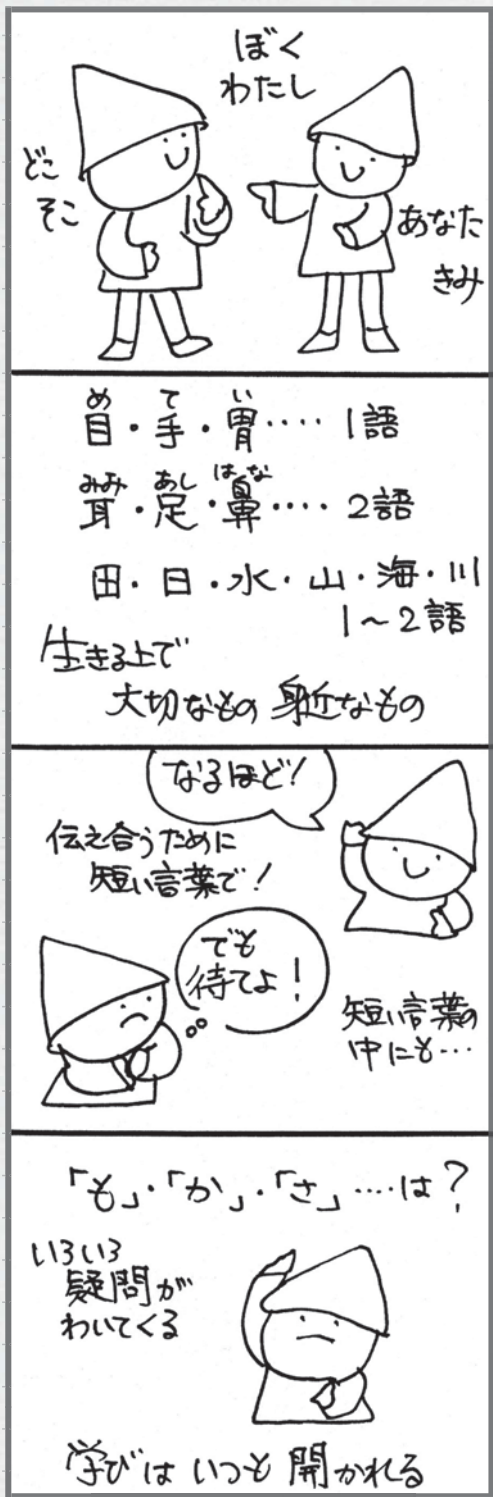 ぼく
わたし
どこ
そこ
あなた
きみ
め て い
目・手・胃‥‥ 1語
みみ あし はな
耳・足・鼻‥‥ 2語
田・日・水・山・海・川
1～2語
生きる上で
大切なもの 身近なもの
なるほど！
伝え合うために
短い言葉で！
でも
待てよ！
短い言葉の
中にも…
「も」・「か」・「さ」‥‥は？
いろいろ
疑問が
わいてくる
学びは いつも 開かれる